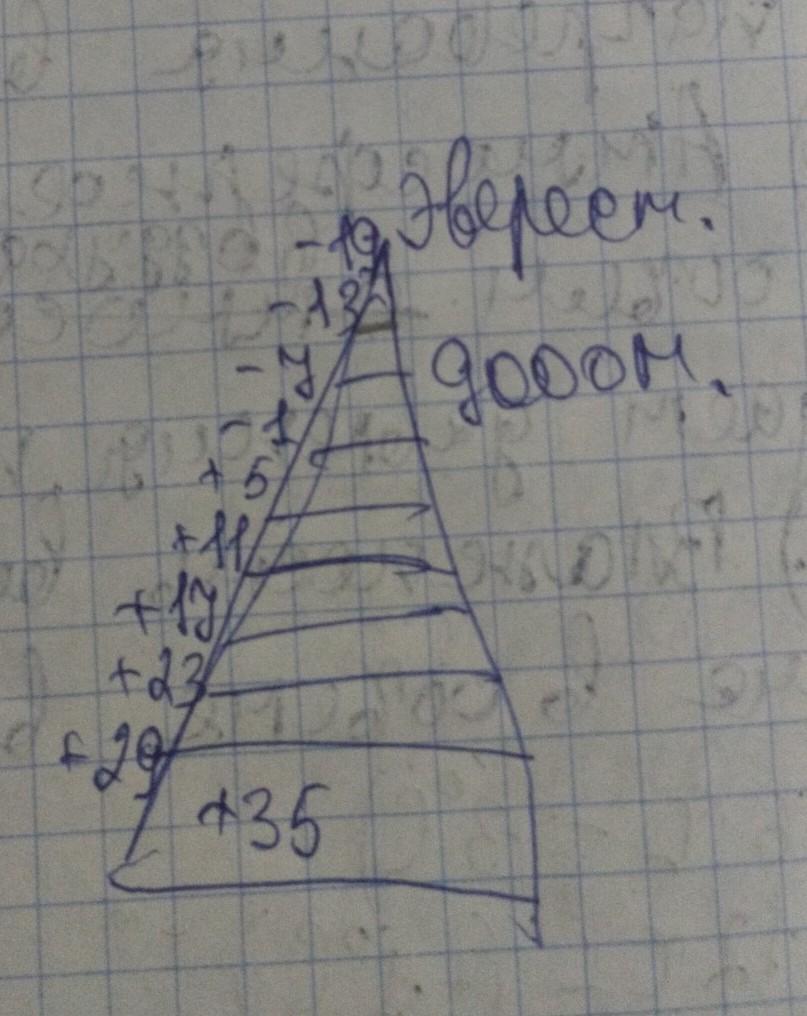 -19 Эверест.
-13
-7
9000м.
-1
+5
+11
+17
+23
+29
+35